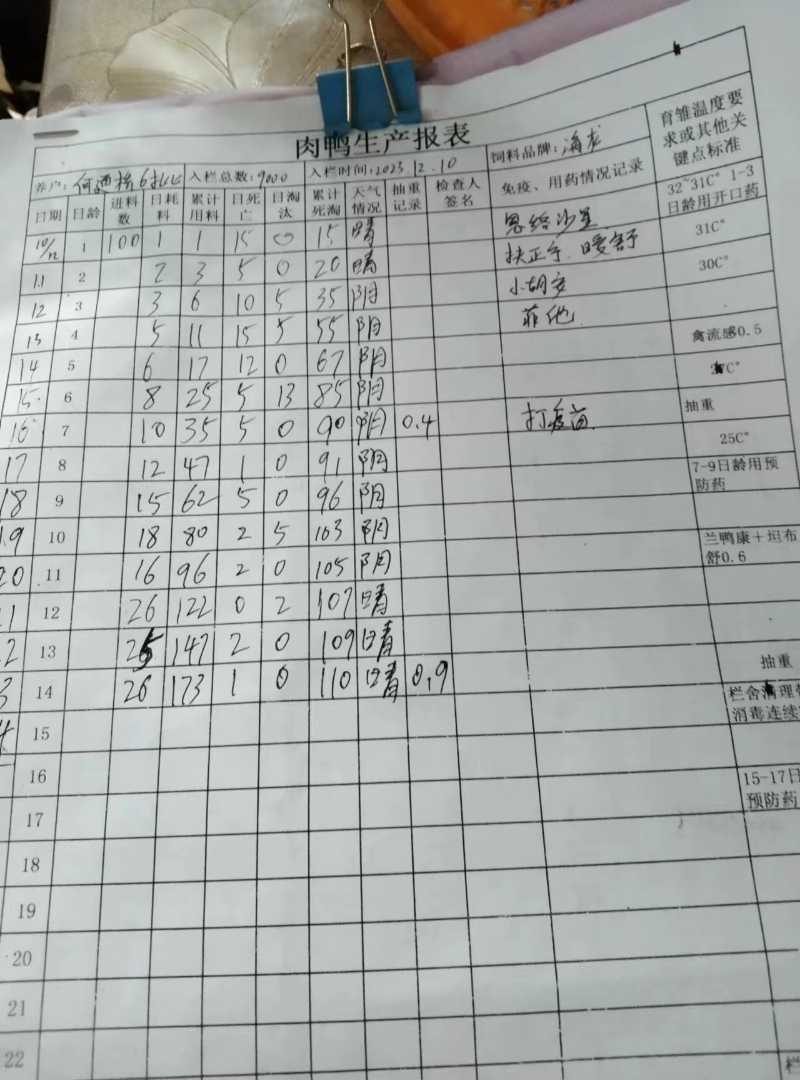 肉鸭生产报表
养户: 6批 入栏总数:9000 入栏时间:2023.12.10 饲料品牌:海龙
日期 日龄 进料数 日耗料 累计用料 日死亡 日淘汰 累计死淘 天气情况 抽重记录 检查人签名 免疫、用药情况记录 育雏温度要求或其他关键点标准
10/12 1 100 1 1 15 0 15 晴 恩给沙星 32~31C° 1-3日龄用开口药
11 2 2 3 5 0 20 晴 扶正 31C°
12 3 3 6 10 5 35 阴 30C°
13 4 5 11 15 5 55 阴
14 5 6 17 12 0 67 阴 禽流感0.5
15 6 8 25 5 13 85 阴 C°
16 7 10 35 5 0 90 阴 0.4 打疫苗 抽重
17 8 12 47 1 0 91 阴 25C°
18 9 15 62 5 0 96 阴 7-9日龄用预防药
19 10 18 80 2 5 103 阴
20 11 16 96 2 0 105 阴 兰鸭康+坦布舒0.6
1 12 26 122 0 2 107 晴
2 13 25 147 2 0 109 晴
3 14 26 173 1 0 110 晴 0.9 抽重
15 栏舍清理 消毒连续
16
17 15-17日 预防药
18
19
20
21
22 栏